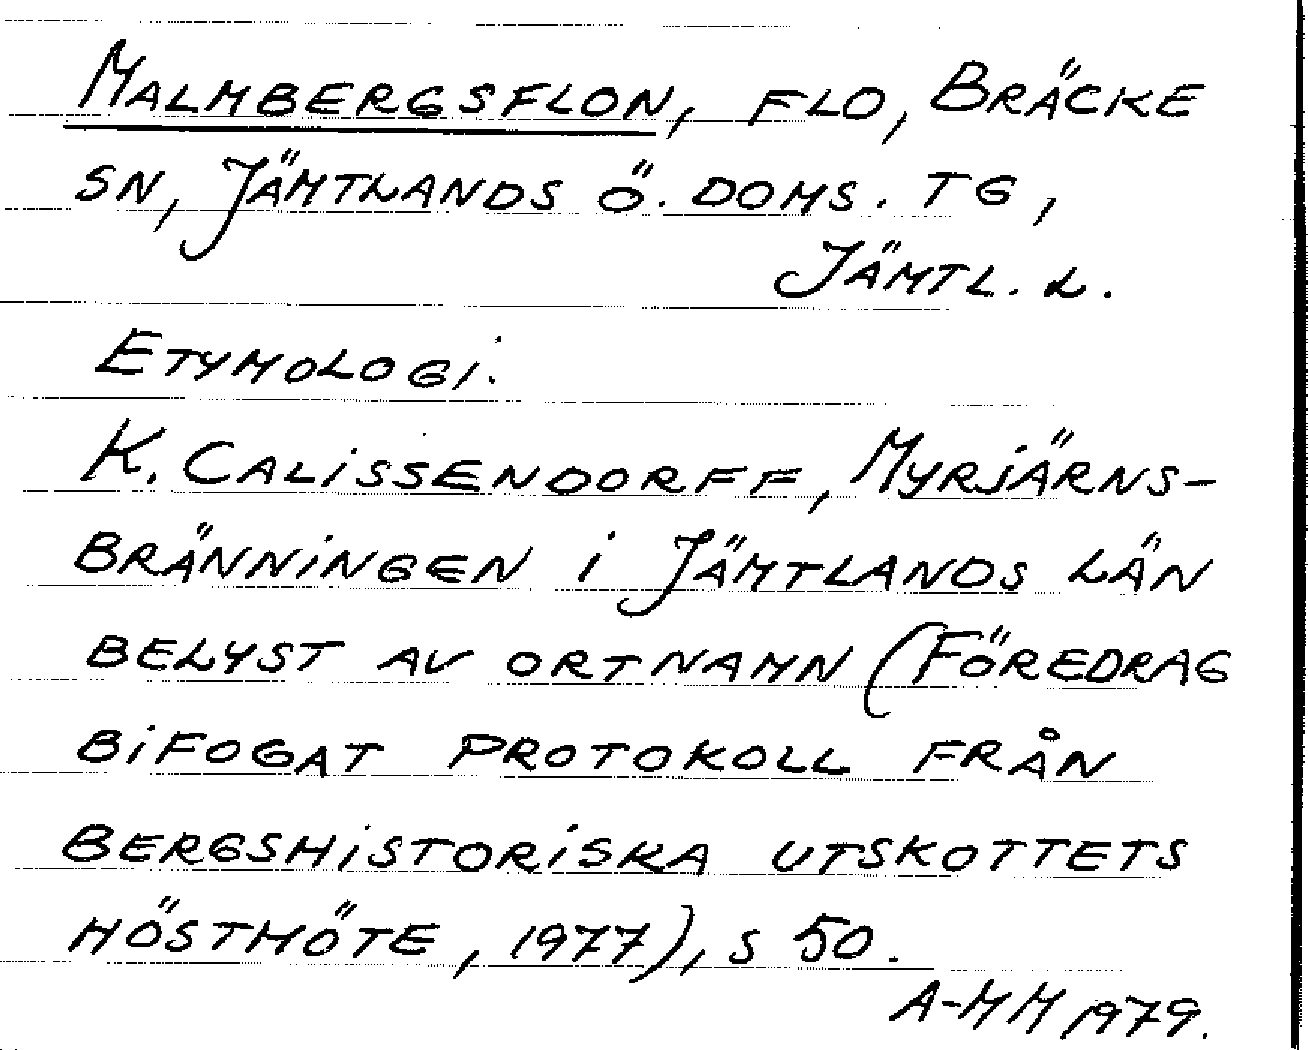 MALMBERGSFLON, FLO, BRÄCKE
SN, JÄMTLANDS Ö. DOMS. TG,
JÄMTL. L.
ETYMOLOGI.
K. CALISSENDORFF, MYRJÄRNS-
BRÄNNINGEN I JÄMTLANDS LÄN
BELYST AV ORTNAMN (FÖREDRAG
BIFOGAT PROTOKOLL FRÅN
BERGSHISTORISKA UTSKOTTETS
HÖSTMÖTE, 1977), S 50.
A-MM 1979.